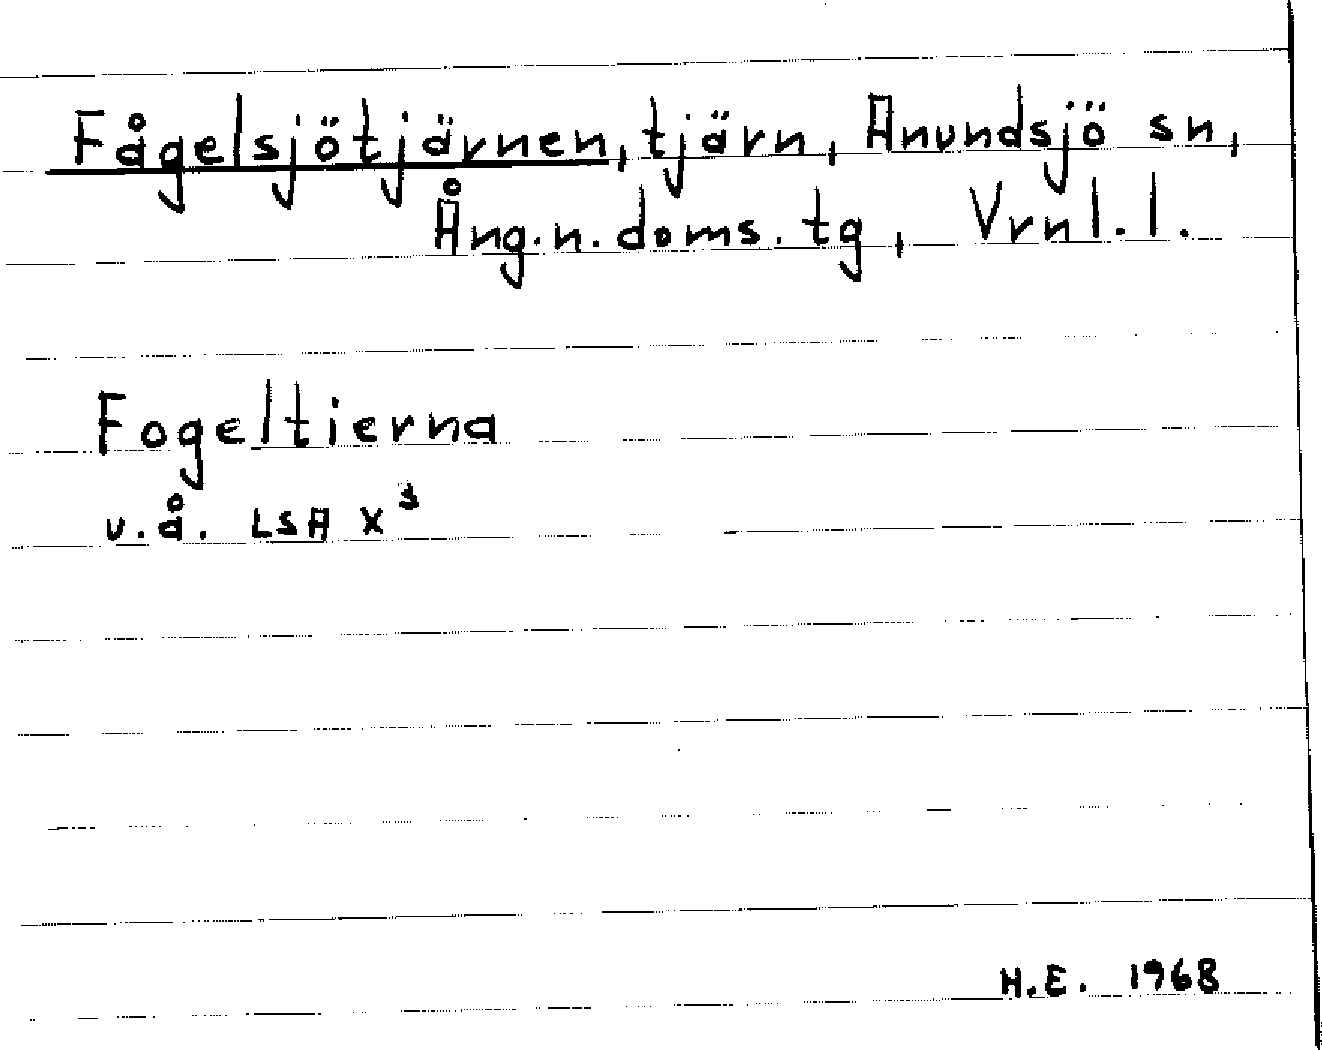 Fågelsjötjärnen, tjärn, Anundsjö sn,
Ång.n.doms.tg, Vrnl.l.
Fogeltierna
u.å. LSA X³
H.E. 1968